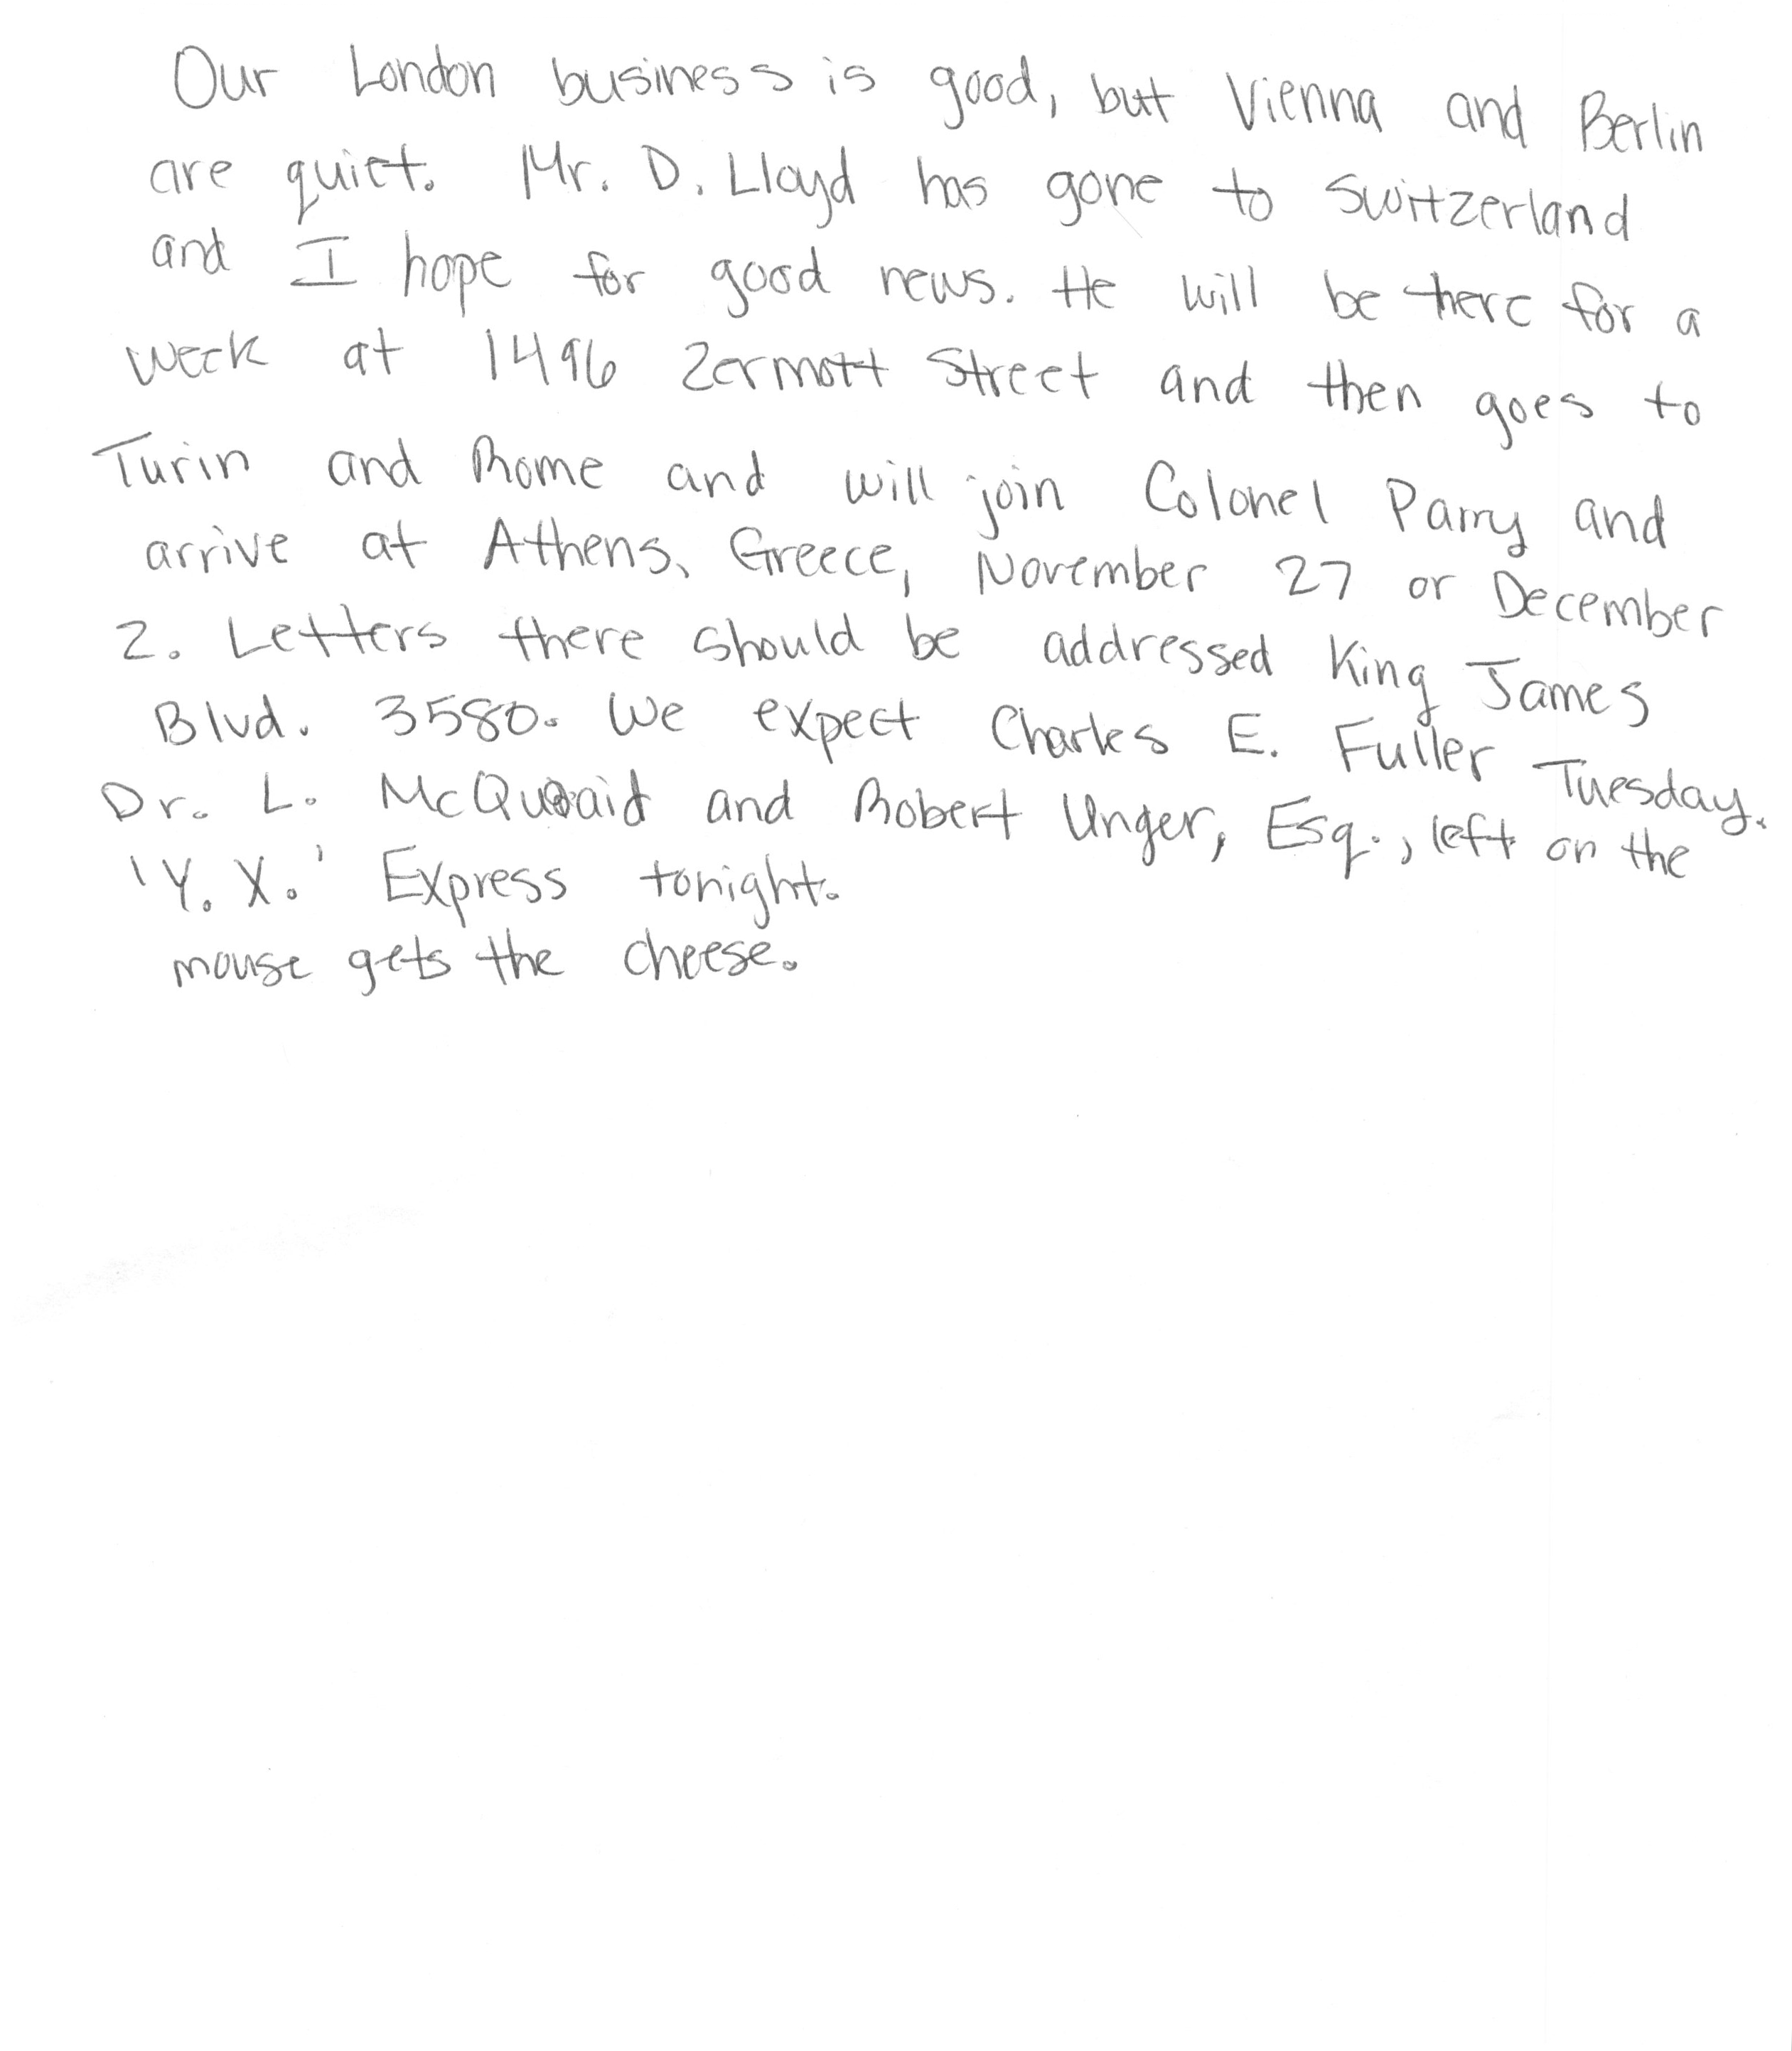 Our London business is good, but Vienna and Berlin
are quiet. Mr. D. Lloyd has gone to Switzerland
and I hope for good news. He will be there for a
week at 1496 Zermott Street and then goes to
Turin and Rome and will join Colonel Parry and
arrive at Athens, Greece, November 27 or December
2. Letters there should be addressed King James
Blvd. 3580. We expect Charles E. Fuller Tuesday.
Dr. L. McQuaid and Robert Unger, Esq., left on the
'Y. X.' Express tonight.
mouse gets the cheese.